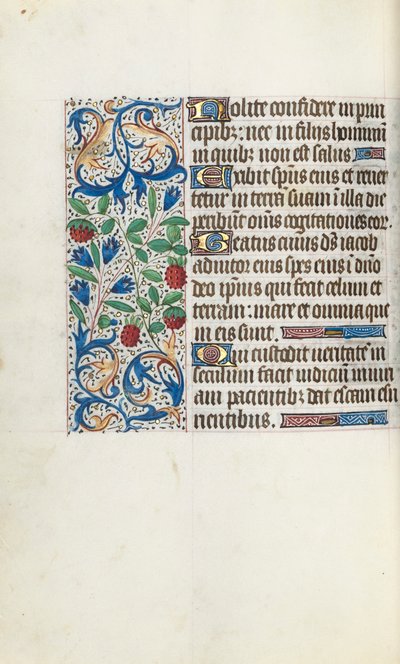 Nolite confidere in prin
cipibꝫ: nec in filiis hominum
in quibꝫ non est salus
Exibit sp̄us eius et reuer
tetur in terrā suam in illa die
peribunt om̄s cogitationes eor̄
Beatus cuius ds̄ iacob
adiutor eius spes eius ī dn̄o
deo ip̄ius qui fecit celum et
terram: mare et omnia que
in eis sunt.
Qui custodit ueritatē in
seculum facit iudiciū iniuri
am pacientibꝫ dat escam esu
rientibus.